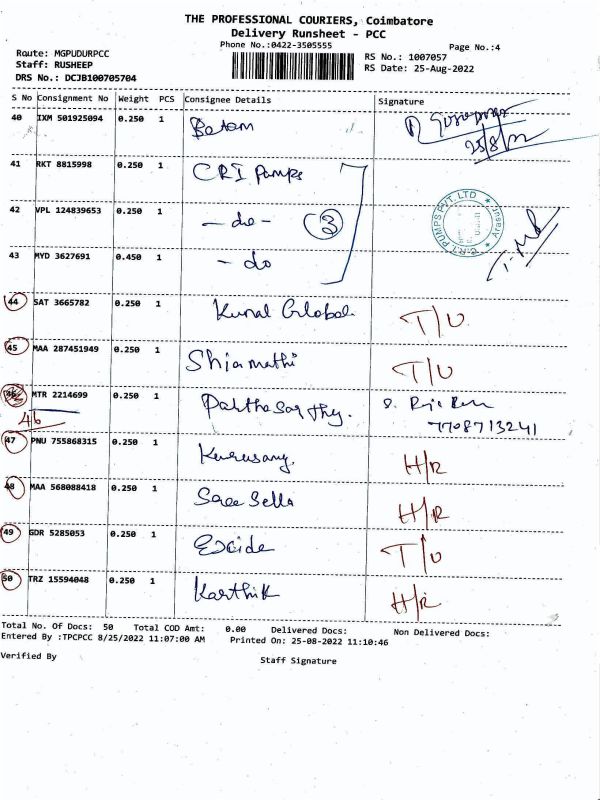 THE PROFESSIONAL COURIERS, Coimbatore
Delivery Runsheet - PCC
Phone No.:0422-3505555
Page No.:4
Route: MGPUDURPCC
RS No.: 1007057
Staff: RUSHEEP
RS Date: 25-Aug-2022
DRS No.: DCJB100705704
S No Consignment No Weight PCS Consignee Details Signature
40 IXM 501925094 0.250 1
25/8/22
41 RKT 8815998 0.250 1 CRI Pumps
42 VPL 124839653 0.250 1 - do - 3
C.R.I. PUMPS PVT. LTD
43 MYD 3627691 0.450 1 - do
44 SAT 3665782 0.250 1 Kunal Global T/U
45 MAA 287451949 0.250 1 Shiamathi T/U
MTR 2214699 0.250 1 Parthasarthy.
46 7708713241
47 PNU 755868315 0.250 1 H/R
48 MAA 568088418 0.250 1 H/R
49 GDR 5285053 0.250 1 Excide T/U
50 TRZ 15594048 0.250 1 Karthik H/R
Total No. Of Docs: 50 Total COD Amt: 0.00 Delivered Docs: Non Delivered Docs:
Entered By :TPCPCC 8/25/2022 11:07:00 AM Printed On: 25-08-2022 11:10:46
Verified By
Staff Signature